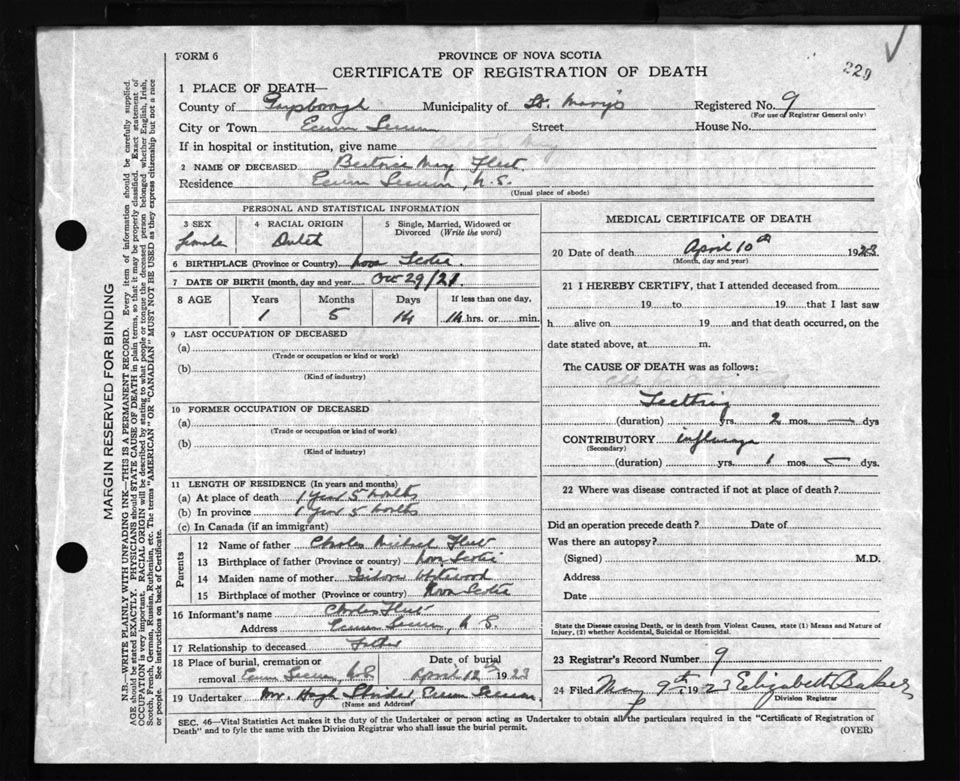 FORM 6
PROVINCE OF NOVA SCOTIA
229
CERTIFICATE OF REGISTRATION OF DEATH
1 PLACE OF DEATH—
County of Guysborough Municipality of St. Mary's Registered No. 9
(For use of Registrar General only)
City or Town Ecum Secum Street House No.
If in hospital or institution, give name
2 NAME OF DECEASED May Fleet
Residence Ecum Secum, N.S.
(Usual place of abode)
PERSONAL AND STATISTICAL INFORMATION
3 SEX 4 RACIAL ORIGIN 5 Single, Married, Widowed or Divorced (Write the word)
female Dutch
6 BIRTHPLACE (Province or Country) Nova Scotia
7 DATE OF BIRTH (month, day and year) Oct 29/21
8 AGE Years Months Days If less than one day,
1 5 14 14 hrs. or min.
9 LAST OCCUPATION OF DECEASED
(a)
(Trade or occupation or kind or work)
(b)
(Kind of industry)
10 FORMER OCCUPATION OF DECEASED
(a)
(Trade or occupation or kind of work)
(b)
(Kind of industry)
11 LENGTH OF RESIDENCE (In years and months)
(a) At place of death 1 Year 5 months
(b) In province 1 Year 5 months
(c) In Canada (if an immigrant)
Parents
12 Name of father Charles Michael Fleet
13 Birthplace of father (Province or country) Nova Scotia
14 Maiden name of mother
15 Birthplace of mother (Province or country) Nova Scotia
16 Informant's name Charles Fleet
Address Ecum Secum, N.S.
17 Relationship to deceased Father
18 Place of burial, cremation or removal Ecum Secum, N.S. Date of burial April 12th 1923
19 Undertaker Mr. Hugh Ecum Secum
(Name and Address)
MEDICAL CERTIFICATE OF DEATH
20 Date of death April 10th 1923
(Month, day and year)
21 I HEREBY CERTIFY, that I attended deceased from
19 to 19 that I last saw
h alive on 19 and that death occurred, on the
date stated above, at m.
The CAUSE OF DEATH was as follows:
Teething
(duration) yrs. 2 mos. — dys
CONTRIBUTORY influenza
(Secondary)
(duration) yrs. 1 mos. — dys.
22 Where was disease contracted if not at place of death?
Did an operation precede death? Date of
Was there an autopsy?
(Signed) M.D.
Address
Date
State the Disease causing Death, or in death from Violent Causes, state (1) Means and Nature of
Injury, (2) whether Accidental, Suicidal or Homicidal.
23 Registrar's Record Number 9
24 Filed May 9th, 1923 Elizabeth Baker
Division Registrar
SEC. 46—Vital Statistics Act makes it the duty of the Undertaker or person acting as Undertaker to obtain all the particulars required in the "Certificate of Registration of
Death" and to fyle the same with the Division Registrar who shall issue the burial permit.
(OVER)
MARGIN RESERVED FOR BINDING
N.B.—WRITE PLAINLY WITH UNFADING INK—THIS IS A PERMANENT RECORD. Every item of information should be carefully supplied.
AGE should be stated EXACTLY. PHYSICIANS should STATE CAUSE OF DEATH in plain terms, so that it may be properly classified. Exact statement of
OCCUPATION is very important. RACIAL ORIGIN will be described by stating to what people or tongue the deceased person belonged whether English, Irish,
Scotch, French, German, Russian, Ruthenian, etc. The terms "AMERICAN" OR "CANADIAN" MUST NOT BE USED as they express citizenship but not a race
or people. See instructions on back of Certificate.